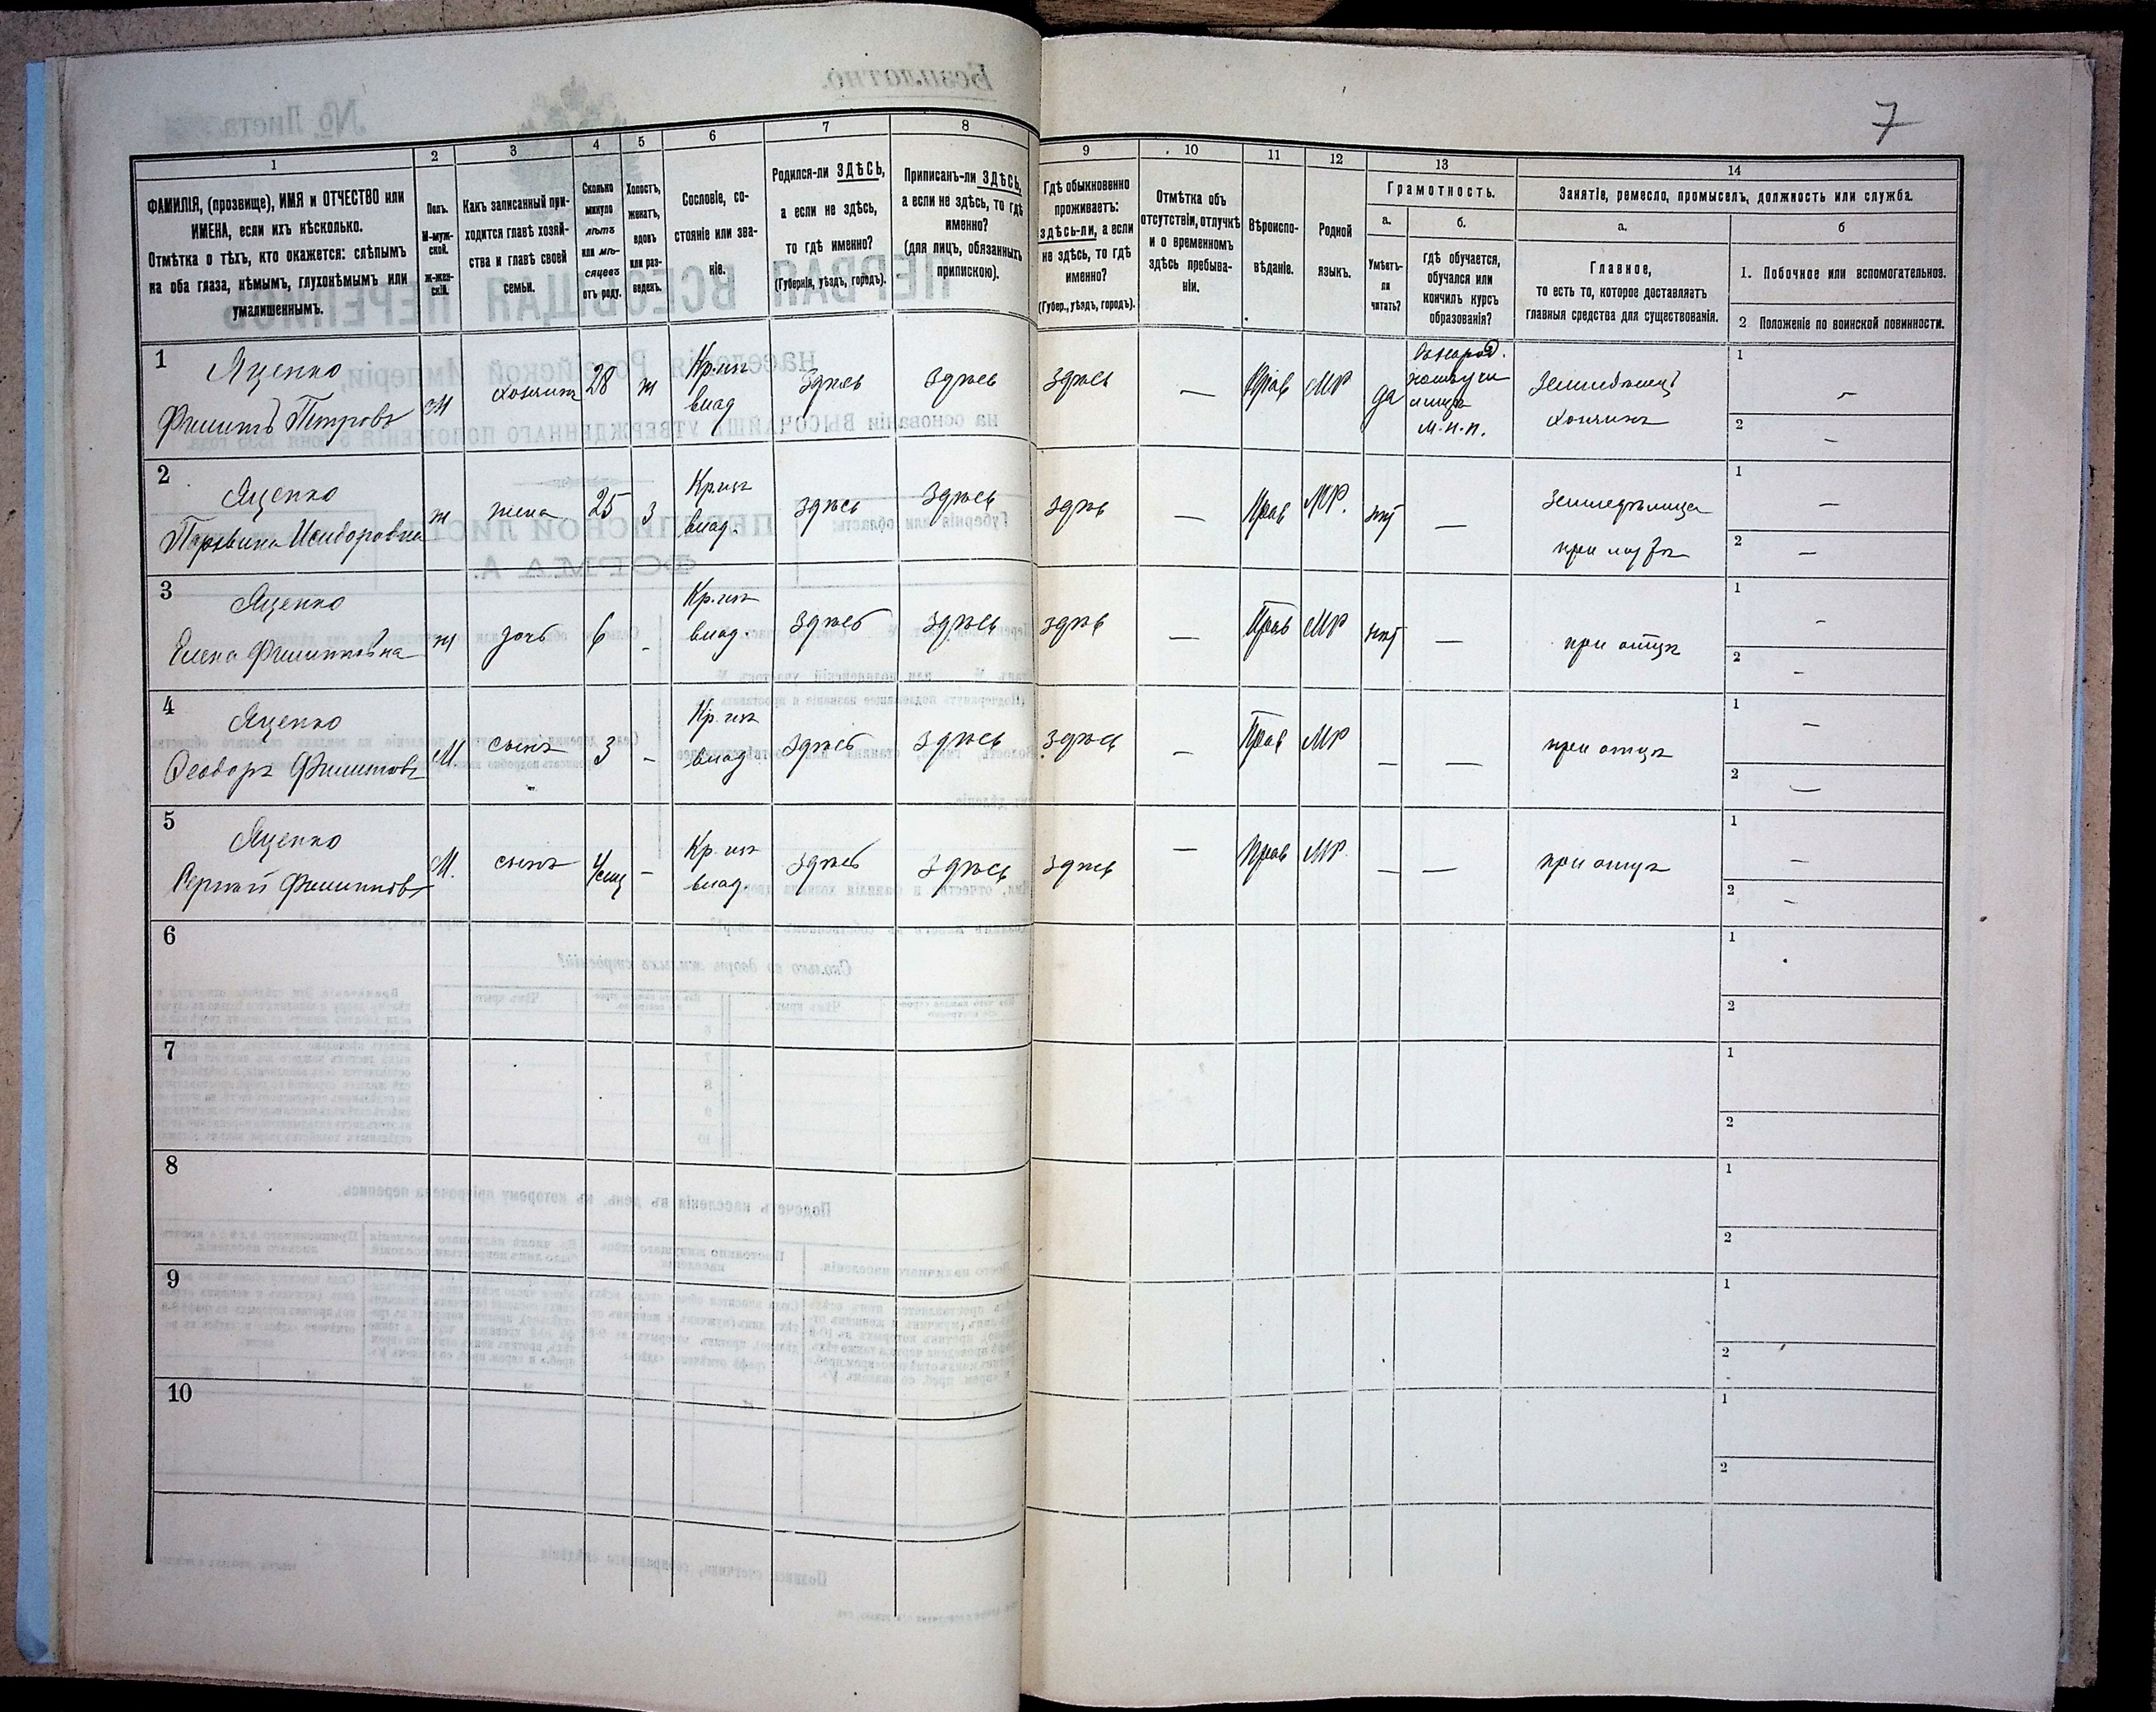 7
1
2
3
4
5
6
7
8
9
10
11
12
13
14
ФАМИЛІЯ, (прозвище), ИМЯ и ОТЧЕСТВО или
ИМЕНА, если ихъ нѣсколько.
Отмѣтка о тѣхъ, кто окажется: слѣпымъ
на оба глаза, нѣмымъ, глухонѣмымъ или
умалишеннымъ.
Полъ.
М-муж-
ской.
Ж-жен-
скій.
Какъ записанный при-
ходится главѣ хозяй-
ства и главѣ своей
семьи.
Сколько
минуло
лѣтъ
или мѣ-
сяцевъ
отъ роду.
Холостъ,
женатъ,
вдовъ
или раз-
веденъ.
Сословіе, со-
стояніе или зва-
ніе.
Родился-ли ЗДѢСЬ,
а если не здѣсь,
то гдѣ именно?
(Губернія, уѣздъ, городъ).
Приписанъ-ли ЗДѢСЬ,
а если не здѣсь, то гдѣ
именно?
(для лицъ, обязанныхъ
припискою).
Гдѣ обыкновенно
проживаетъ:
здѣсь-ли, а если
не здѣсь, то гдѣ
именно?
(Губер., уѣздъ, городъ).
Отмѣтка объ
отсутствіи, отлучкѣ
и о временномъ
здѣсь пребыва-
ніи.
Вѣроиспо-
вѣданіе.
Родной
языкъ.
Грамотность.
а.
б.
Умѣетъ-
ли
читать?
гдѣ обучается,
обучался или
кончилъ курсъ
образованія?
Занятіе, ремесло, промыселъ, должность или служба.
а.
б
Главное,
то есть то, которое доставляетъ
главныя средства для существованія.
1. Побочное или вспомогательное.
2. Положеніе по воинской повинности.
1
Яценко
Филиппъ Петровъ
м
хозяинъ
28
ж
Кр. изъ
влад
Здѣсь
Здѣсь
Здѣсь
—
Прав
МР
да
М.Н.П.
Земледѣлецъ
хозяинъ
1
—
2
—
2
Яценко
Исидоровна
ж
жена
25
з
Кр. изъ
влад.
здѣсь
Здѣсь
здѣсь
—
Прав
МР.
нѣт
—
Земледѣлица
при мужѣ
1
—
2
—
3
Яценко
Елена Филипповна
ж
дочь
6
-
Кр. изъ
влад.
Здѣсь
Здѣсь
здѣсь
—
Прав
МР
нѣт
—
при отцѣ
1
-
2
-
4
Яценко
Ѳеодоръ Филипповъ
М.
сынъ
3
-
Кр. изъ
влад
Здѣсь
Здѣсь
Здѣсь
-
Прав
МР
—
—
при отцѣ
1
—
2
—
5
Яценко
Сергѣй Филипповъ
М.
сынъ
-
Кр. изъ
влад.
Здѣсь
Здѣсь
здѣсь
—
Прав
МР.
—
—
при отцѣ
1
—
2
-
6
1
2
7
1
2
8
1
2
9
1
2
10
1
2